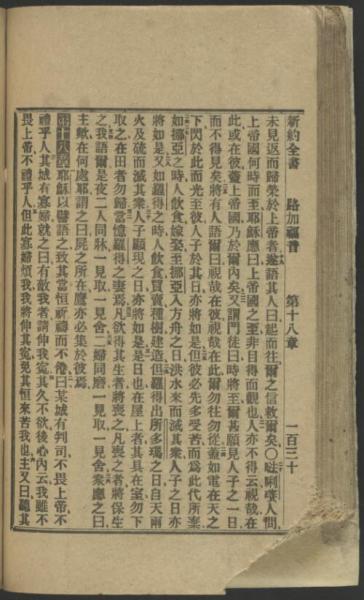 新約全書 路加福音 第十八章 一百三十
未見返而歸榮於上帝者遂語其人曰起而往爾之信救爾矣〇𠵽唎㘔人問
上帝國何時而至耶穌應曰上帝國之至非目得而觀也人亦不得云視哉在
此或在彼蓋上帝國乃於爾內矣又謂門徒曰時將至爾甚願見人子之一日
而不得見矣將有人語爾曰視哉在彼視哉在此爾勿往勿從蓋如電在天之
下閃於此而光至彼人子於其日亦將如是但彼必先多受苦而為此代所棄
如挪亞之時人飲食嫁娶至挪亞入方舟之日洪水來而滅其衆人子之日亦
將如是又如羅得之時人飲食買賣種樹建造但羅得出所多瑪之日自天雨
火及硫而滅其衆人子顯現之日亦將如是是日也在屋上者其具在室勿下
取之在田者勿歸當憶羅得之妻焉凡欲得其生者將喪之凡喪之者將保生
之我語爾是夜二人同牀一見取一見舍二婦同磨一見取一見舍衆應之曰
主歟在何處耶謂之曰屍之所在鷹亦必集於彼焉
第十八章 耶穌以譬語之致其當恒祈禱而不倦曰某城有判司不畏上帝不
禮乎人其城有寡婦就之曰有敵我者請伸我寃其久不欲後心內云我雖不
畏上帝不禮乎人但此寡婦煩我我將伸其寃免其恒來苦我也主又曰聽其